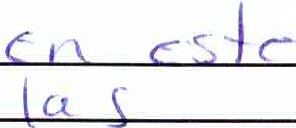 en este
las